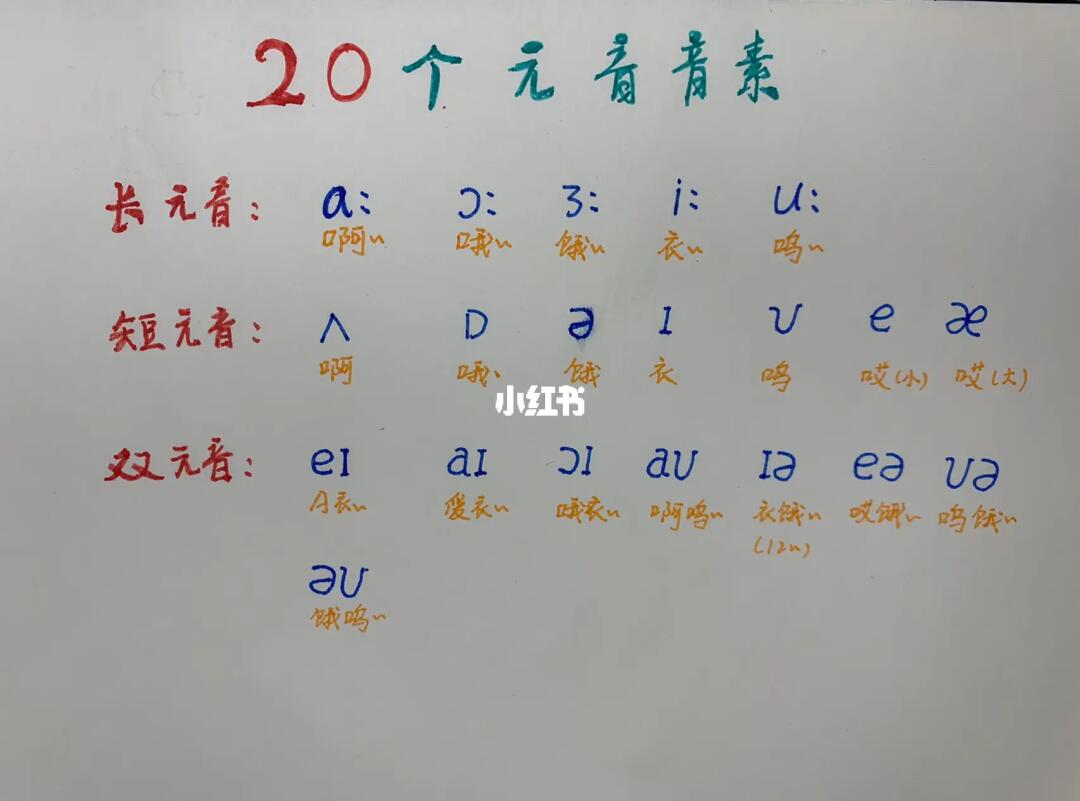 20个元音音素
长元音： ɑː ɔː ɜː iː uː
啊~ 哦~ 饿~ 衣~ 呜~
短元音： ʌ ɒ ə ɪ ʊ e æ
啊 哦、 饿 衣 呜 哎(小) 哎(大)
小红书
双元音： eɪ aɪ ɔɪ aʊ ɪə eə ʊə
A衣~ 爱衣~ 哦衣~ 啊呜~ 衣饿~ 哎饿~ 呜饿~
(12~)
əʊ
饿呜~